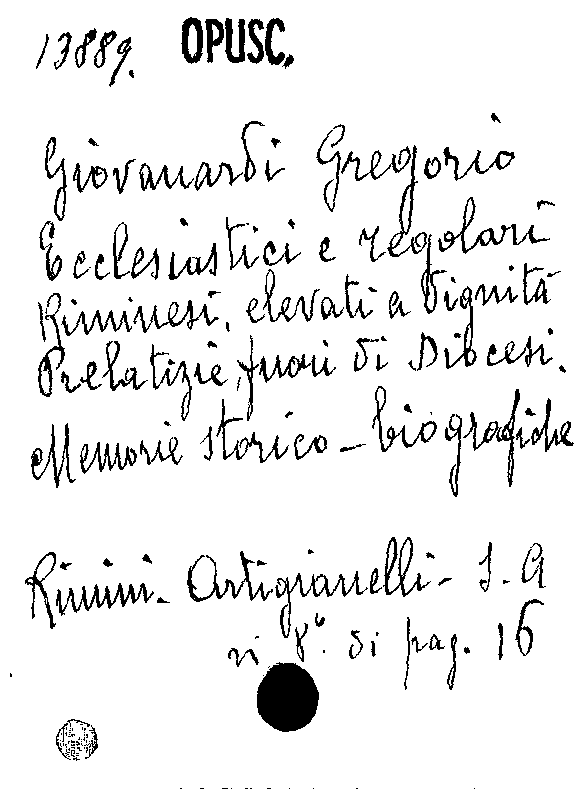 13889. OPUSC.
Giovanardi Gregorio
Ecclesiastici e regolari
Riminesi, elevati a dignità
Prelatizie, fuori di Diocesi.
Memorie storico-biografiche
Rimini. Artigianelli - S. A
in 8°. di pag. 16